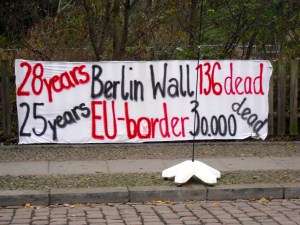 28 years Berlin Wall 136 dead
25 years EU-border 30.000 dead